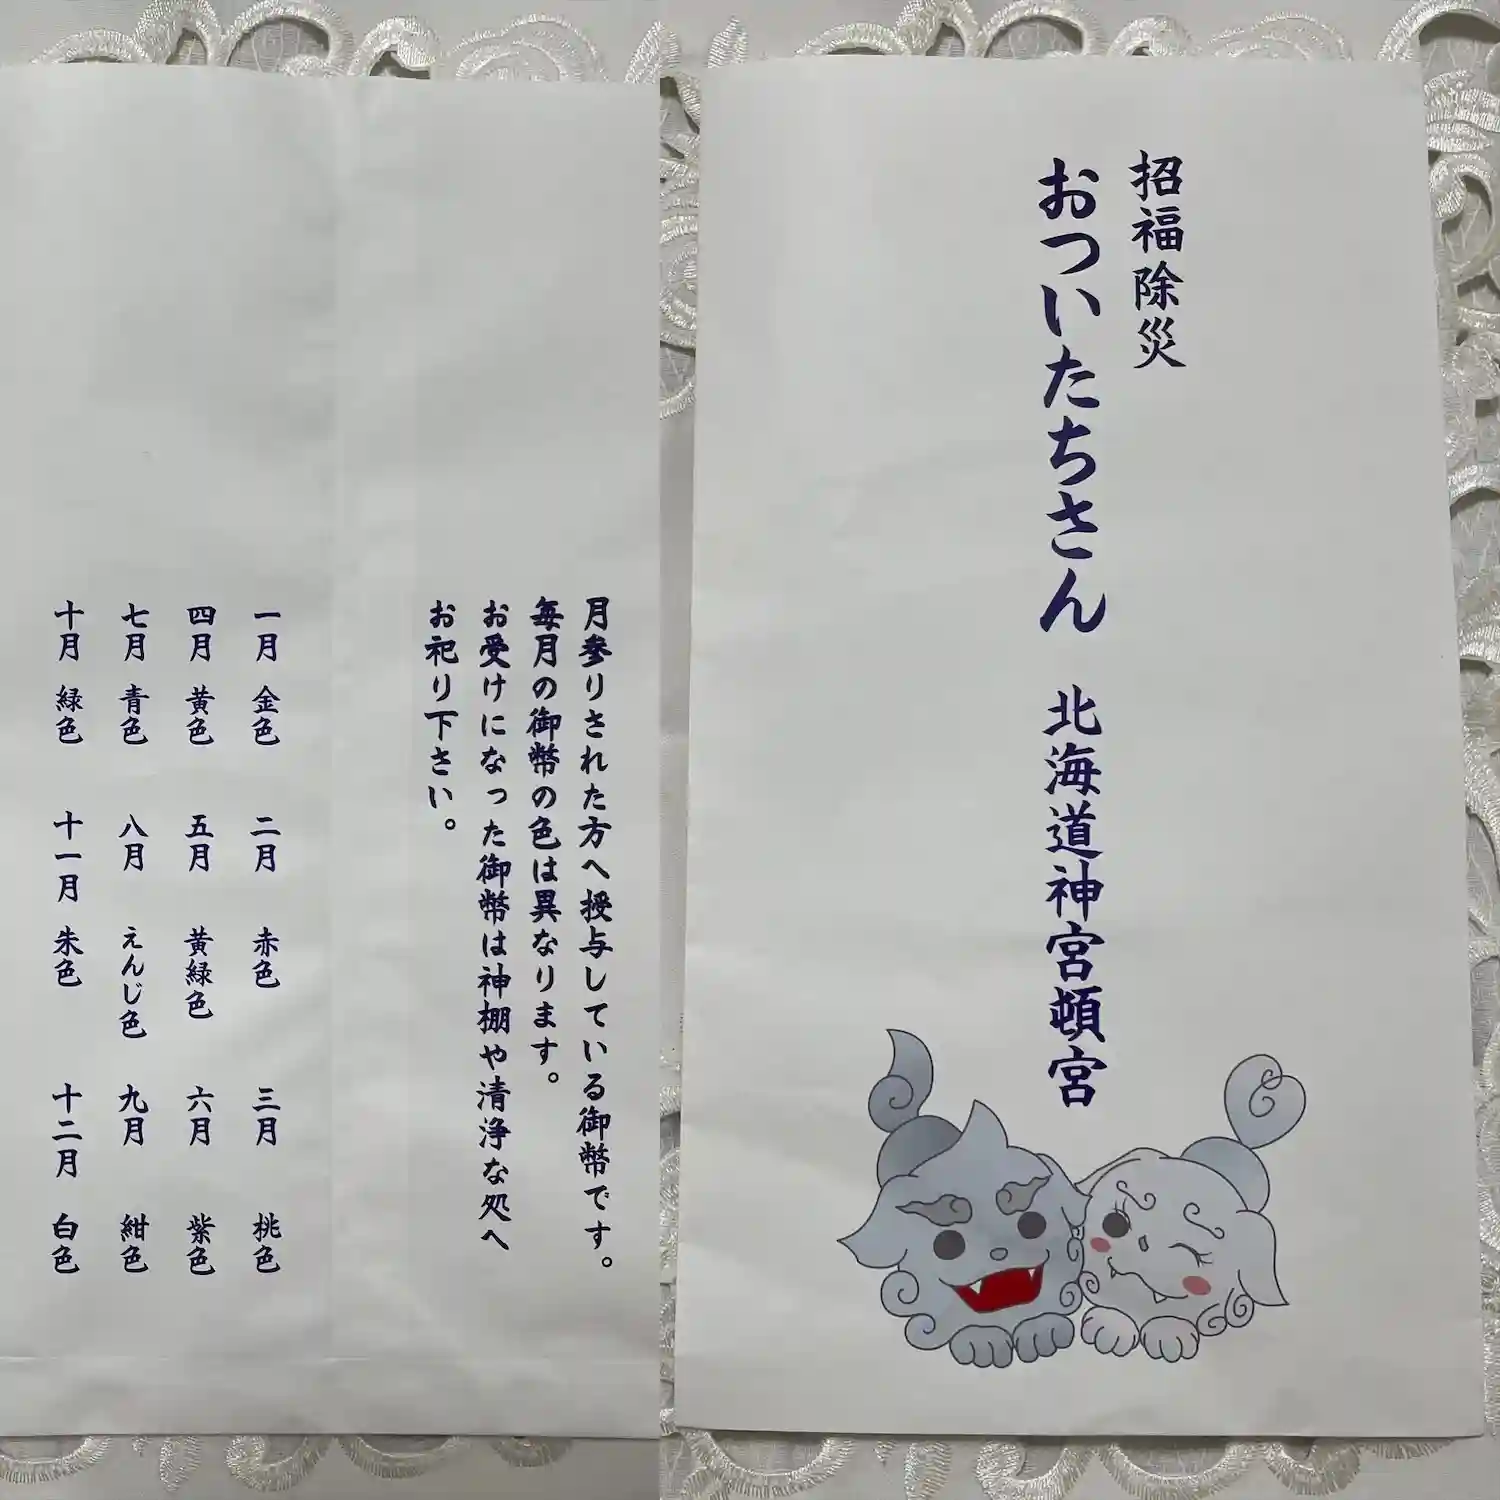 招福除災
おついたちさん　北海道神宮頓宮
月参りされた方へ授与している御幣です。
毎月の御幣の色は異なります。
お受けになった御幣は神棚や清浄な処へ
お祀り下さい。
一月　金色　二月　赤色　三月　桃色
四月　黄色　五月　黄緑色　六月　紫色
七月　青色　八月　えんじ色　九月　紺色
十月　緑色　十一月　朱色　十二月　白色